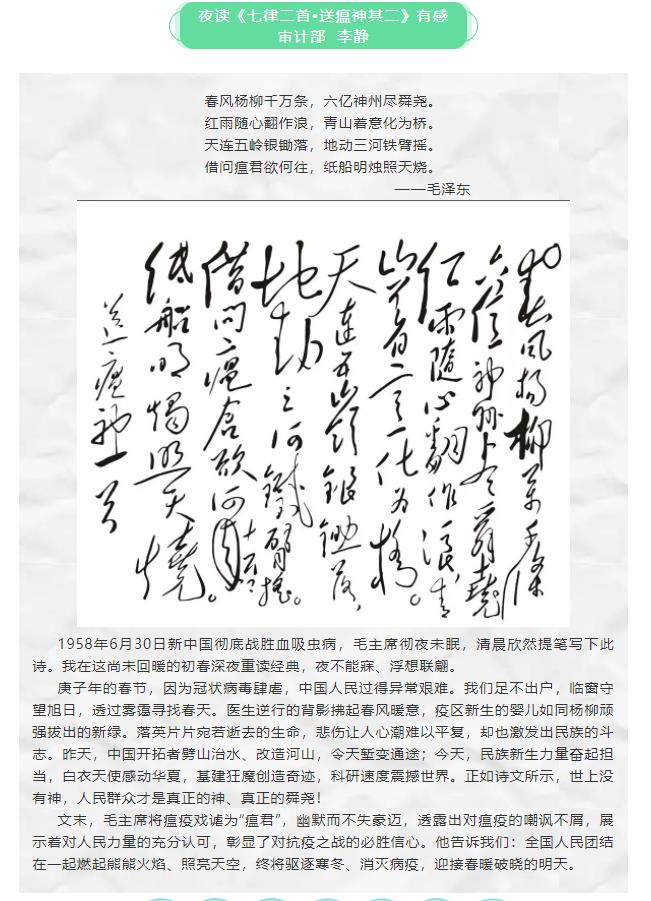 夜读《七律二首•送瘟神其二》有感
审计部 李静
春风杨柳千万条，六亿神州尽舜尧。
红雨随心翻作浪，青山着意化为桥。
天连五岭银锄落，地动三河铁臂摇。
借问瘟君欲何往，纸船明烛照天烧。
——毛泽东
春風楊柳萬千條
六億神州盡舜堯
紅雨隨心翻作浪，青
山着意化為橋。
天連五嶺銀鋤落，
地動三河鐵臂搖。
借問瘟君欲何
紙船明燭照天燒。
送瘟神一首
1958年6月30日新中国彻底战胜血吸虫病，毛主席彻夜未眠，清晨欣然提笔写下此
诗。我在这尚未回暖的初春深夜重读经典，夜不能寐、浮想联翩。
庚子年的春节，因为冠状病毒肆虐，中国人民过得异常艰难。我们足不出户，临窗守
望旭日，透过雾霭寻找春天。医生逆行的背影拂起春风暖意，疫区新生的婴儿如同杨柳顽
强拔出的新绿。落英片片宛若逝去的生命，悲伤让人心潮难以平复，却也激发出民族的斗
志。昨天，中国开拓者劈山治水、改造河山，令天堑变通途；今天，民族新生力量奋起担
当，白衣天使感动华夏，基建狂魔创造奇迹，科研速度震撼世界。正如诗文所示，世上没
有神，人民群众才是真正的神、真正的舜尧！
文末，毛主席将瘟疫戏谑为“瘟君”，幽默而不失豪迈，透露出对瘟疫的嘲讽不屑，展
示着对人民力量的充分认可，彰显了对抗疫之战的必胜信心。他告诉我们：全国人民团结
在一起燃起熊熊火焰、照亮天空，终将驱逐寒冬、消灭病疫，迎接春暖破晓的明天。